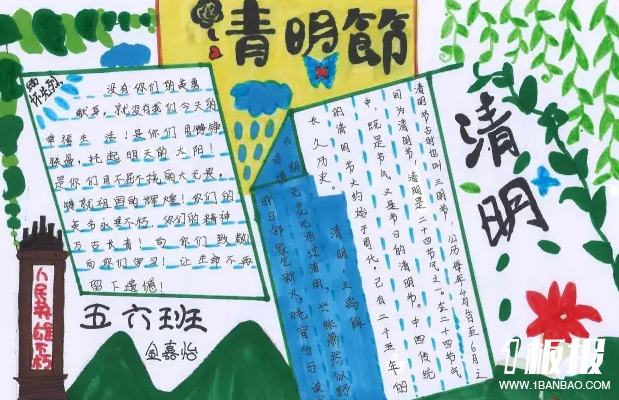 清明節
缅怀先烈
没有你们的英勇
献身，就没有我们今天的
幸福生活！是你们用铮铮
铁骨，托起明天的太阳！
是你们用不屈不挠的大无畏，
铸就祖国的辉煌！你们的
英名永垂不朽，你们的精神
万古长青！向你们致敬
向你们学习！让生命不再
留下遗憾！
五六班
金嘉怡
人民英雄不朽
清明
清明节古时也叫三月节，公历每年4月4日至6日之
间为清明节，清明是二十四节气之一。在二十四节气
中，既是节气又是节日的清明节。中国传统
的清明节大约始于周代，已有二千五百年的
长久历史。
清明，王禹偁
无花无酒过清明，兴味萧然似野
昨日邻家乞新火，晓窗分与读
板报
WWW.1BANBAO.COM